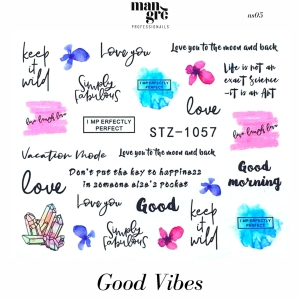 man
gre
PROFESSIONAILS
ns05
keep
it
wild
Love you
Love you to the moon and back
Simply
Fabulous
I MP ERFECTLY
PERFECT
Life is not an
exact Science
-it is an Art
love laugh love
I MP ERFECTLY
PERFECT
STZ-1057
love
love laugh love
Vacation mode
Love you to the moon and back
Good
morning
love
Don't put the key to happiness
in someone else's pocket
Love you
Good
keep
it
wild
Simply
Fabulous
I MPERFECTLY
PERFECT
Good Vibes